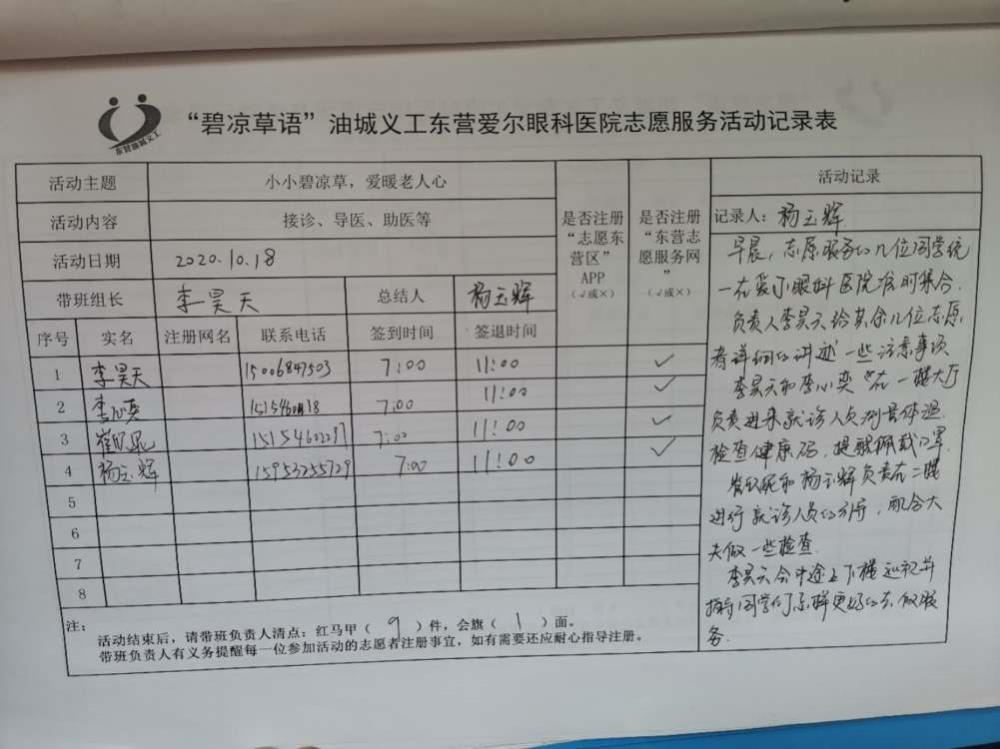 东营油城义工
“碧凉草语”油城义工东营爱尔眼科医院志愿服务活动记录表
活动主题 小小碧凉草，爱暖老人心
活动内容 接诊、导医、助医等
活动日期 2020.10.18
带班组长 李昊天 总结人 杨玉辉
是否注册
“志愿东
营区”
APP
（√或×）
是否注册
“东营志
愿服务网
”
（√或×）
序号 实名 注册网名 联系电话 签到时间 签退时间
1 李昊天 15006847503 7:00 11:00 ✓
2 李心奕 7:00 11:00 ✓
3 7:00 11:00 ✓
4 杨玉辉 15953255729 7:00 11:00 ✓
5
6
7
8
活动记录
记录人：杨玉辉
早晨，志愿服务的几位同学统
一在爱尔眼科医院准时集合．
负责人李昊天给其余几位志愿
者详细的讲述一些注意事项
李昊天和李心奕 在一楼大厅
负责进来就诊人员测量体温
检查健康码，提醒佩戴口罩．
和杨玉辉负责在二楼
进行就诊人员的 ，配合大
夫做一些检查．
李昊天会中途上下楼巡视并
指导同学们怎样更好的去做服
务．
注：
活动结束后，请带班负责人清点：红马甲（ 9 ）件，会旗（ 1 ）面。
带班负责人有义务提醒每一位参加活动的志愿者注册事宜，如有需要还应耐心指导注册。